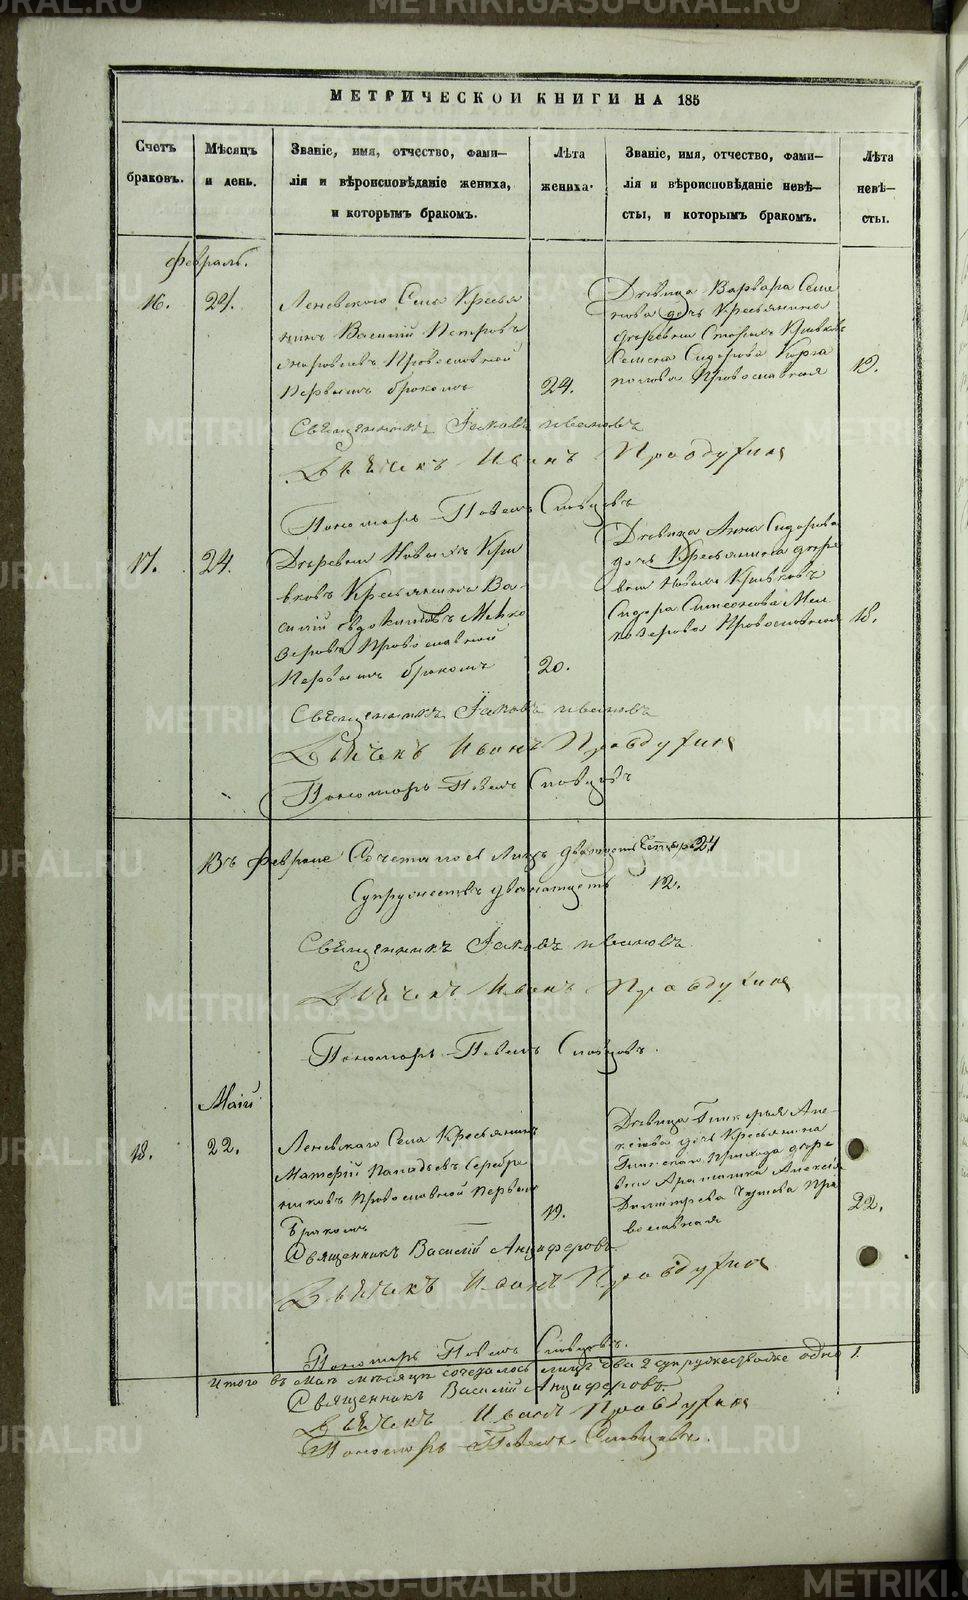 МЕТРИЧЕСКОЙ КНИГИ НА 185
Счетъ браковъ.
Мѣсяцъ и день.
Званіе, имя, отчество, фами-
лія и вѣроисповѣданіе жениха,
и которымъ бракомъ.
Лѣта жениха.
Званіе, имя, отчество, фами-
лія и вѣроисповѣданіе невѣ-
сты, и которымъ бракомъ.
Лѣта невѣ-
сты.
Февраль.
16.
24.
Леневского Села Кресья
нинъ Василій Петровъ
Православной
Первымъ бракомъ
24.
Дѣвица Варвара Семе
нова дочь Кресьянина
деревни Старыхъ Кривковъ
Семена Сидорова
Православная
19.
Священникъ Іаковъ Ивановъ
Дьячекъ Иванъ Правдухинъ
Пономарь Павелъ Словцовъ
17.
24.
Деревни Новыхъ Кри
вковъ Кресьянинъ Ва-
силій Евдокимовъ Мелко
зеровъ Православной
Первымъ бракомъ
20.
Дѣвица Анна Сидорова
дочь Кресьянина дере
вни Новыхъ Кривковъ
Сидора Симеонова Мел
козерова Православная
18.
Священникъ Іаковъ Ивановъ
Дьячекъ Иванъ Правдухинъ
Пономарь Павелъ Словцовъ
Въ Феврале Сочеталось Лицъ двадцать четыре 24
Супружествъ двенатцеть 12.
Священникъ Іаковъ Ивановъ
Дьячекъ Иванъ Правдухинъ
Пономарь Павелъ Словцовъ.
Маій
18.
22.
Леневскаго Села Кресьянинъ
Матфій Серебря
никовъ Православной Первымъ
Бракомъ
19.
Дѣвица Гликерья Але-
ксіева дочь Кресьянина
Глинскаго Прихода дере
вни Арамашка Алексія
Димитріева Пра
вославная
22.
Священникъ Василій Анциферовъ
Дьячекъ Иванъ Правдухинъ
Пономарь Павелъ Словцовъ.
Итого въ Маѣ месяце сочеталось лицъ два 2 супружество одно 1.
Священникъ Василій Анциферовъ.
Дьячекъ Иванъ Правдухинъ
Пономарь Павелъ Словцовъ.
METRIKI.GASO-URAL.RU